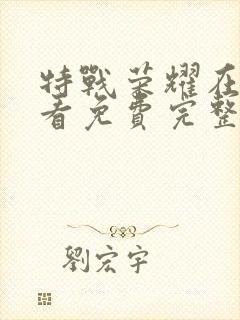 特戰荣耀在
看免費完整
劉宏宇